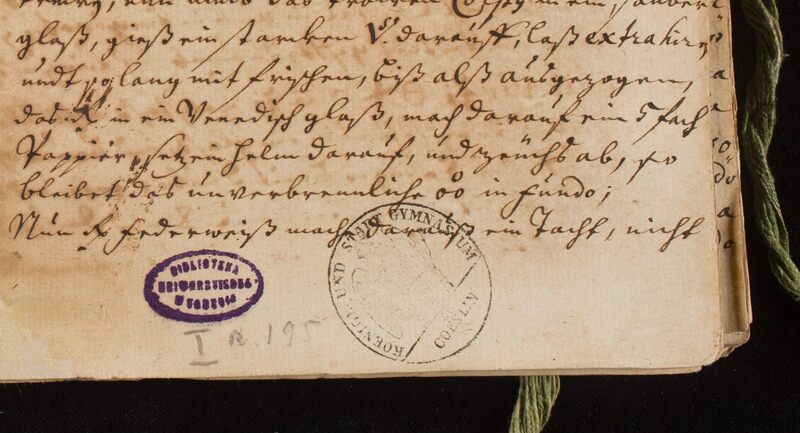 glaß, gieß ein starcken V. darauff, laß extrahirn,
undt so lang mit frischen, biß alß außgezogen,
das in ein Venedisch glaß, mach darauf ein 5 fach
Pappier, setz ein helm darauf, und zeuchs ab, so
bleibet das unverbrennliche öö in fundo;
Nun Federweiß mach darauß ein Tacht, nicht
BIBLIOTEKA
UNIWERSYTECKA
W TORUNIU
KOENIGL. UND STADT GYMNASIUM
COESLIN
I R. 195